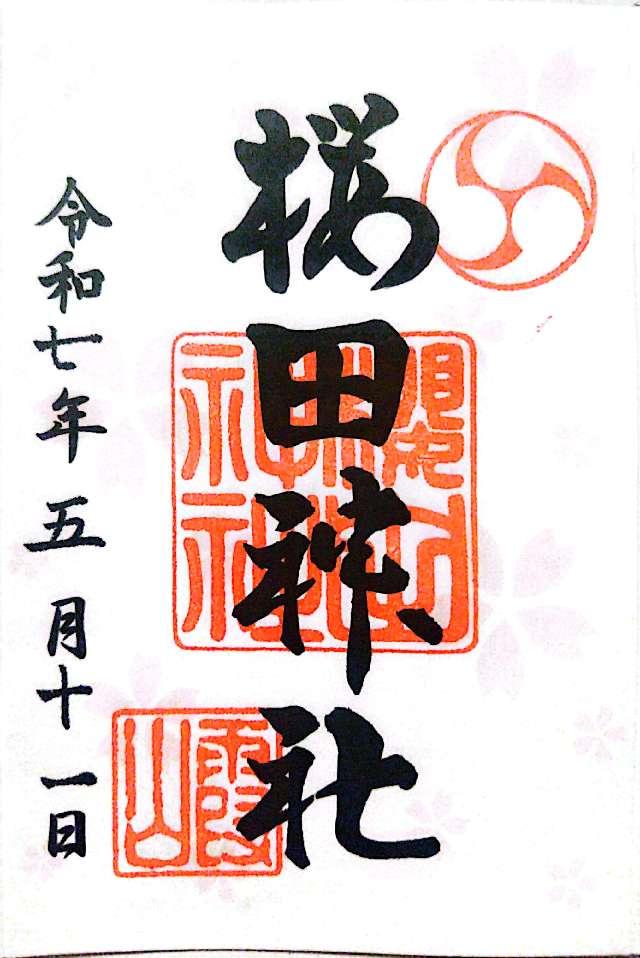 桜田神社
令和七年五月十一日
霞山